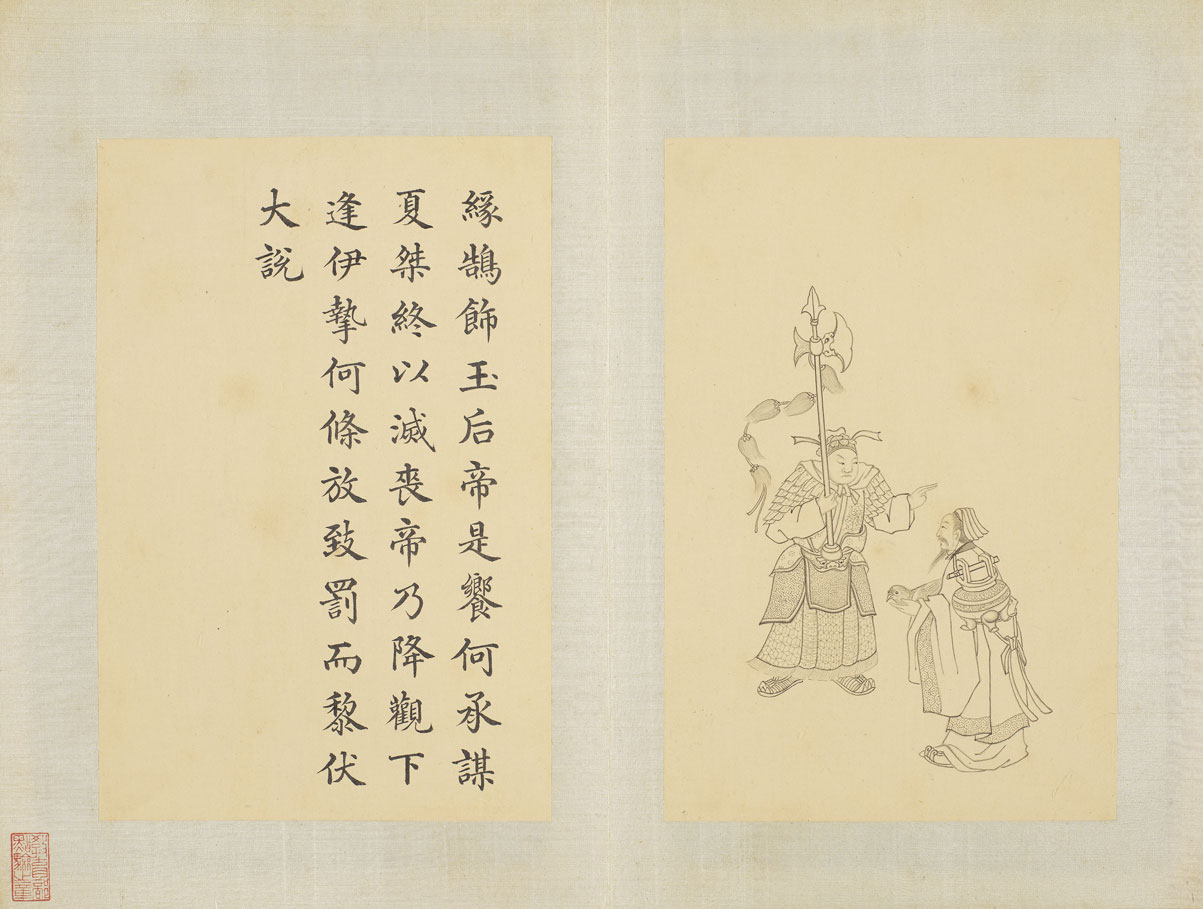 緣鵠飾玉后帝是饗何承謀
夏桀終以滅喪帝乃降觀下
逢伊摯何條放致罰而黎伏
大說
教育部點驗之章